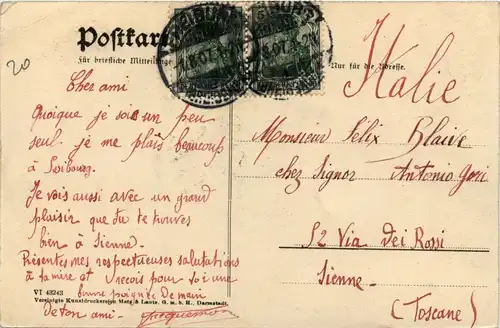 Postkarte
für briefliche Mitteilungen
Nur für die Adresse.
20
Italie
Cher ami
Quoique je sois un peu
seul je me plais beaucoup
à Fribourg.
Je vois aussi avec un grand
plaisir que tu te trouves
bien à Sienne.
Présentes mes respectueuses salutations
à ta mère et reçois pour toi une
bonne poignée De main
de ton ami
Monsieur Félix Blaive
chez Signor Antonio Gori
52 Via dei Rossi
Sienne
(Toscane)
VI 43243
Vereinigte Kunstdruckereien Metz & Lautz, G. m. b. H., Darmstadt.